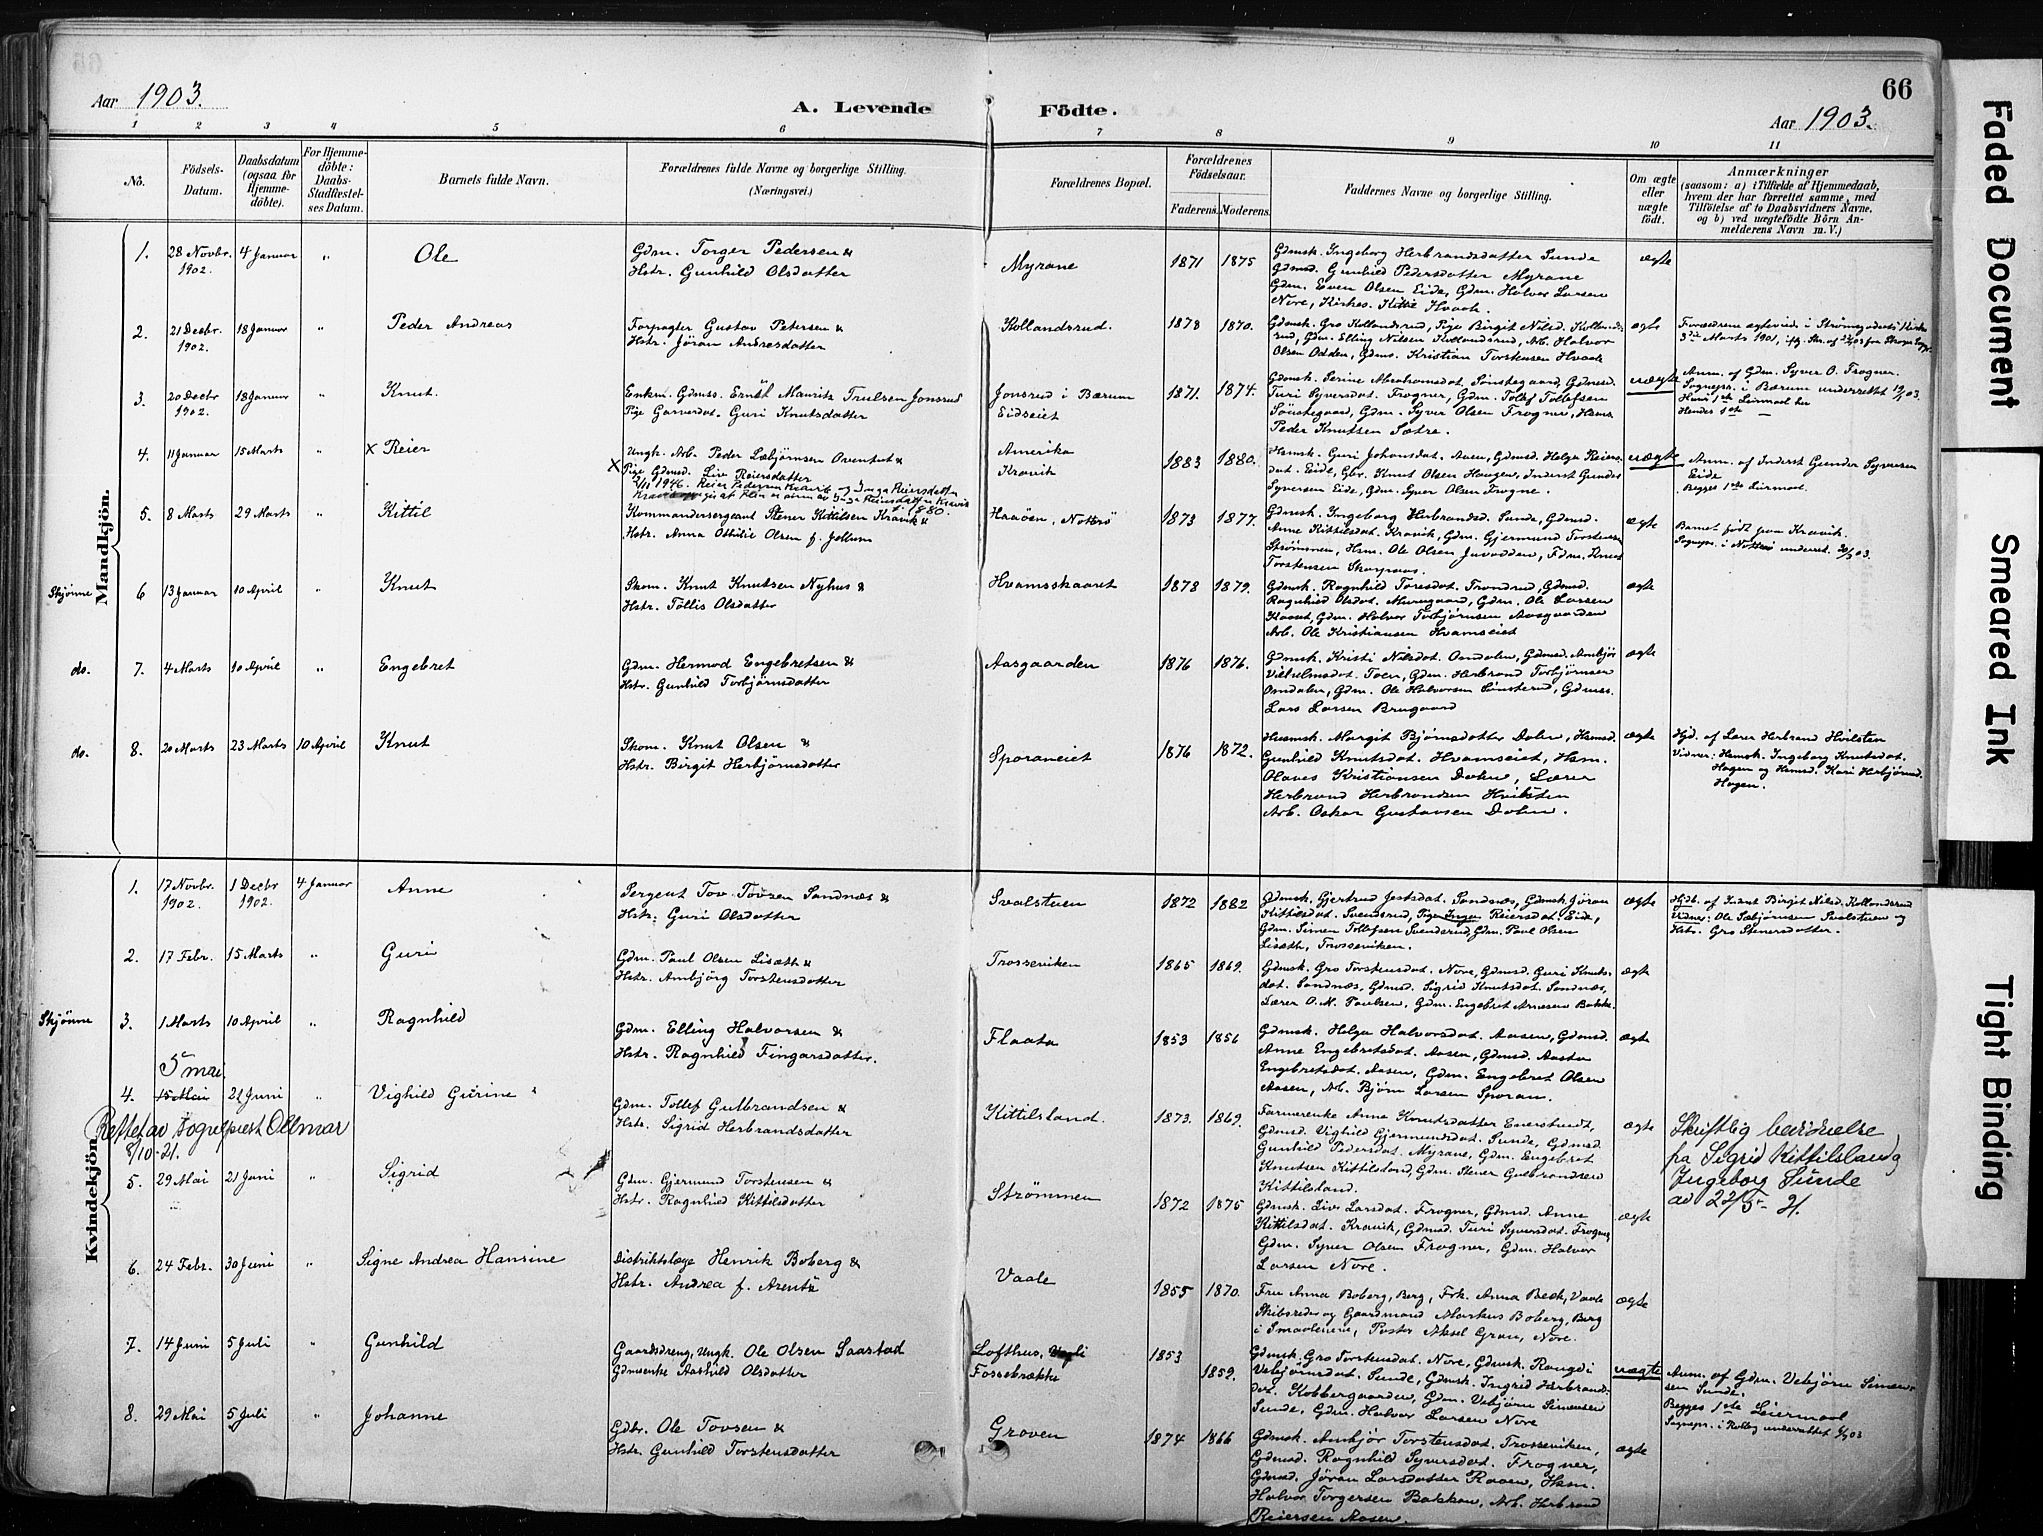 66
Aar 1903.
A. Levende Födte.
Aar 1903.
1 2 3 4 5 6 7 8 9 10 11
No.
Födsels-Datum.
Daabsdatum (ogsaa for Hjemme-döbte).
For Hjemme-döbte: Daabs-Stadfæstel-ses Datum.
Barnets fulde Navn.
Forældrenes fulde Navne og borgerlige Stilling. (Næringsvei.)
Forældrenes Bopæl.
Forældrenes Födselsaar.
Faderens. Moderens.
Faddernes Navne og borgerlige Stilling.
Om ægte eller uægte födt.
Anmærkninger
(saasom: a) i Tilfælde af Hjemmedaab, hvem der har forrettet samme, med Tilföielse af to Daabsvidners Navne, og b) ved uægtefödte Börn An-melderens Navn m. V.)
Mandkjön.
1. 28 Novbr. 1902. 4 Januar " Ole
Gdm. Torger Pedersen &
Hstr. Gunhild Olsdatter
Myrane 1871 1875
Gdmsk. Ingeborg Herbrandsdatter Sunde
Gdmsd. Gunhild Pedersdatter Myrane
Gdm. Even Olsen Eide, Gdm. Halvor Larsen
Nore, Kirkes. Kittil Hvaale.
ægte
2. 21 Decbr. 1902. 18 Januar " Peder Andreas
Forpagter Gustav Petersen &
Hstr. Jöran Andresdatter
Kollandsrud. 1878 1870.
Gdmsk. Gro Kollandsrud, Pige Birgit Nilsd. Kollands-
rud, Gdm. Elling Nilsen Kollandsrud, Arb. Halvor
Olsen Odden, Gdms. Kristian Torstensen Hvaale
ægte
Forældrene ægteviede i Strömsgodsets Kirke
3die Marts 1901,
3. 20 Decbr 1902. 18 Januar " Knut.
Enkm. Gdmss. Ernst Mauritz Trulsen Jonsrud
Pige Garverdat. Guri Knutsdatter
Jonsrud i Bærum
Eidseiet
1871. 1874.
Gdmsk. Serine Abrahamsdat. Sönstegaard, Gdmsd.
Turi Syversdat. Frogner, Gdm. Tollef Tollefsen
Sönstegaard, Gdm. Syver Olsen Frogner, Hsms.
Peder Knutsen Sætre.
uægte
Anm. af Gdm. Syver O. Frogner.
Sognepr. i Bærum underrettet 19/1 03.
Hans 1ste Leiermaal
Hendes 1ste —
4. 11 Januar 15 Marts " x Reier
Ungk. Arb. Peder Læbjörnsen &
x Pige Gdmsd. Liv Reiersdatter
2/11 1946. Reier Pedersen Kravik
1880.
Amerika
Kravik
1883 1880.
Hsmsk. Guri Johansdat. Aasen, Gdmsd. Helga Reiers-
dat. Eide, Gbr. Knut Olsen Haugen, Inderst Gunder
Syversen Eide, Gdm. Syver Olsen Frogne.
uægte
Anm. af Inderst Gunder Syversen
Eide
Begges 1ste Leiermaal.
5. 8 Marts 29 Marts " Kittil
Kommandersergeant Stener Kittilsen Kravik &
Hstr. Anna Othilie Olsen f. Jellum
Haaöen, Nötterö 1873 1877.
Gdmsk. Ingeborg Herbrandsd. Sunde, Gdmsd.
Anne Kittilsdat. Kravik, Gdm. Gjermund Torstensen
Strömmen, Hsm. Ole Olsen Juvodden,
Torstensen
ægte
Barnet födt paa Kravik.
Sognepr. i Nötterö underret. 30/3 03.
Skjönne 6 13 Januar 10 April " Knut
Skom. Knut Knutsen Nyhus &
Hstr. Töllis Olsdatter
Hvamsskaaret 1878 1879.
Gdmsk. Ragnhild Toresdat. Trondrud, Gdmsd.
Ragnhild Olsdat. Muregaard, Gdm. Ole Larsen
Kaaset, Gdm. Halvor Torbjörnsen Aasgaarden
Arb. Ole Kristiansen Hvamseiet
ægte
do. 7. 4 Marts 10 April " Engebret
Gdm. Hermod Engebretsen &
Hstr. Gunhild Torbjörnsdatter
Aasgaarden 1876 1876.
Gdmsk. Kristi Nilsdat. Omdalen, Gdmsd. Ambjör
Vilhelmsdat. Toen, Gdm. Herbrand Torbjörnsen
Omdalen, Gdm. Ole Halvorsen Sönsterud, Gdmss.
Lars Larsen Brugaard
ægte
do. 8. 20 Marts 23 Marts 10 April Knut
Skom. Knut Olsen &
Hstr. Birgit Herbjörnsdatter
Sporaneiet 1876 1872.
Husmsk. Margit Björnsdatter Dalen, Hsmsd.
Gunhild Knutsdat. Hvamseiet, Hsm.
Olaves Kristiansen Dalen, Lærer
Herbrand Herbrandsen Hvilsten
Arb. Oskar Gustavsen Dalen.
ægte
Hjd. af Lærer Herbrand Hvilsten
Vidner: Hsmsk. Ingeborg Knutsdat.
Hagen og Hsmsd. Kari Herbjörnsd.
Hagen.
Kvindekjön.
1. 17 Novbr. 1902. 1 Decbr 1902. 4 Januar Anne
Sergent Tov Tovsen Sandnæs &
Hstr: Guri Olsdatter
Svalstuen 1872 1882
Gdmsk. Gjertrud Sandnæs, Gdmsk. Jöran
Kittilsdat. Svenderud, Pige Inga Reiersdat. Eide,
Gdm. Simen Tollefsen Svenderud, Gdm. Paul Olsen
Lisæth, Trosseviken.
ægte
Hjdb. af Inderst Birgit Nilsd. Kollandsrud
Vidner: Ole Sæbjörnsen Svalstuen og
Hstr. Gro Stenersdatter.
2. 17 Febr. 15 Marts " Guri
Gdm. Paul Olsen Lisæth &
Hstr. Ambjörg Torstensdatter
Trosseviken 1865 1869.
Gdmsk. Gro Torstensdat. Nore, Gdmsd. Guri Knuts-
dat. Sandnæs, Gdmsd. Sigrid Knutsdat. Sandnæs,
Lærer O. M. Paulsen, Gdm. Engebret Arnesen Bakke.
ægte
Skjönne 3. 1 Marts 10 April " Ragnhild
Gdm. Elling Halvorsen &
Hstr. Ragnhild Fingarsdatter.
Flaata 1853 1856
Gdmsk. Helga Halvorsdat. Aasen, Gdmsd.
Anne Engebretsdat. Aasen, Gdmsd. Aasta
Engebretsdat. Aasen, Gdm. Engebret Olsen
Aasen, Arb. Björn Larsen Sporan.
ægte
5 mai
4. 15 Mai 21 Juni " Vighild Gurine
Rettet av Sognepræst Ollmar
8/10-21.
Gdm. Tollef Gulbrandsen &
Hstr. Sigrid Herbrandsdatter
Kittilsland. 1873. 1869.
Farmerenke Anne Knutsdatter Enerstvedt,
Gdmsd. Vighild Gjermundsdat. Sunde, Gdmsd.
Gunhild Pedersdat. Myrane, Gdm. Engebret
Knutsen Kittilsland, Gdm. Stener Gulbrandsen
Kittilsland.
ægte
Skriftlig bevidnelse
fra Sigrid Kittilsland
Ingeborg Sunde
av 22/5- 21.
5. 29 Mai 21 Juni " Sigrid
Gdm. Gjermund Torstensen &
Hstr. Ragnhild Kittilsdatter
Strömmen 1872 1875
Gdmsk. Liv Larsdat. Frogner, Gdmsd. Anne
Kittilsdat. Kravik, Gdmsd. Turi Syversdat. Frogner,
Gdm. Syver Olsen Frogner, Gdm. Halvor
Larsen Nore.
ægte
6. 24 Febr. 30 Juni " Signe Andrea Hansine
Distriktslæge Henrik Boberg &
Hstr. Andrea f. Arentz
Vaale 1855 1870.
Fru Anna Boberg, Berg, Frk. Anna Beck, Vaale
Skibsreder og Gaardmand Markus Boberg, Berg
i Smaalenene, Pastor Aksel Gran, Nore.
ægte
7. 14 Juni 5 Juli " Gunhild
Gaardsdreng, Ungk. Ole Olsen Saastad
Gdmsenke Aashild Olsdatter
Lofthus,
Fossebrække
1853 1859.
Gdmsk. Gro Torstensdat. Nore, Gdmsk. Rangdi
Vebjörnsdat. Sunde, Gdmsk. Ingrid Herbrands-
dat. Kobbergaarden, Gdm. Vebjörn Simensen
Sunde, Gdm. Halvor Larsen Nore
uægte
Anm. af Gdm. Vebjörn Simen-
sen Sunde.
Begges 1ste Leiermaal
8. 29 Mai 5 Juli " Johanne
Gdbr. Ole Tovsen &
Hstr. Gunhild Torstensdatter
Groven 1874 1866
Gdmsk. Ambjör Torstensdat. Trosseviken,
Gdmsd. Ragnhild Syversdat. Frogner,
Gdmsd. Jöran Larsdatter Raaen, Hsm.
Halvor Torgersen Bakken, Arb. Herbrand
Reiersen Aasen.
ægte
Faded Document
Smeared Ink
Tight Binding